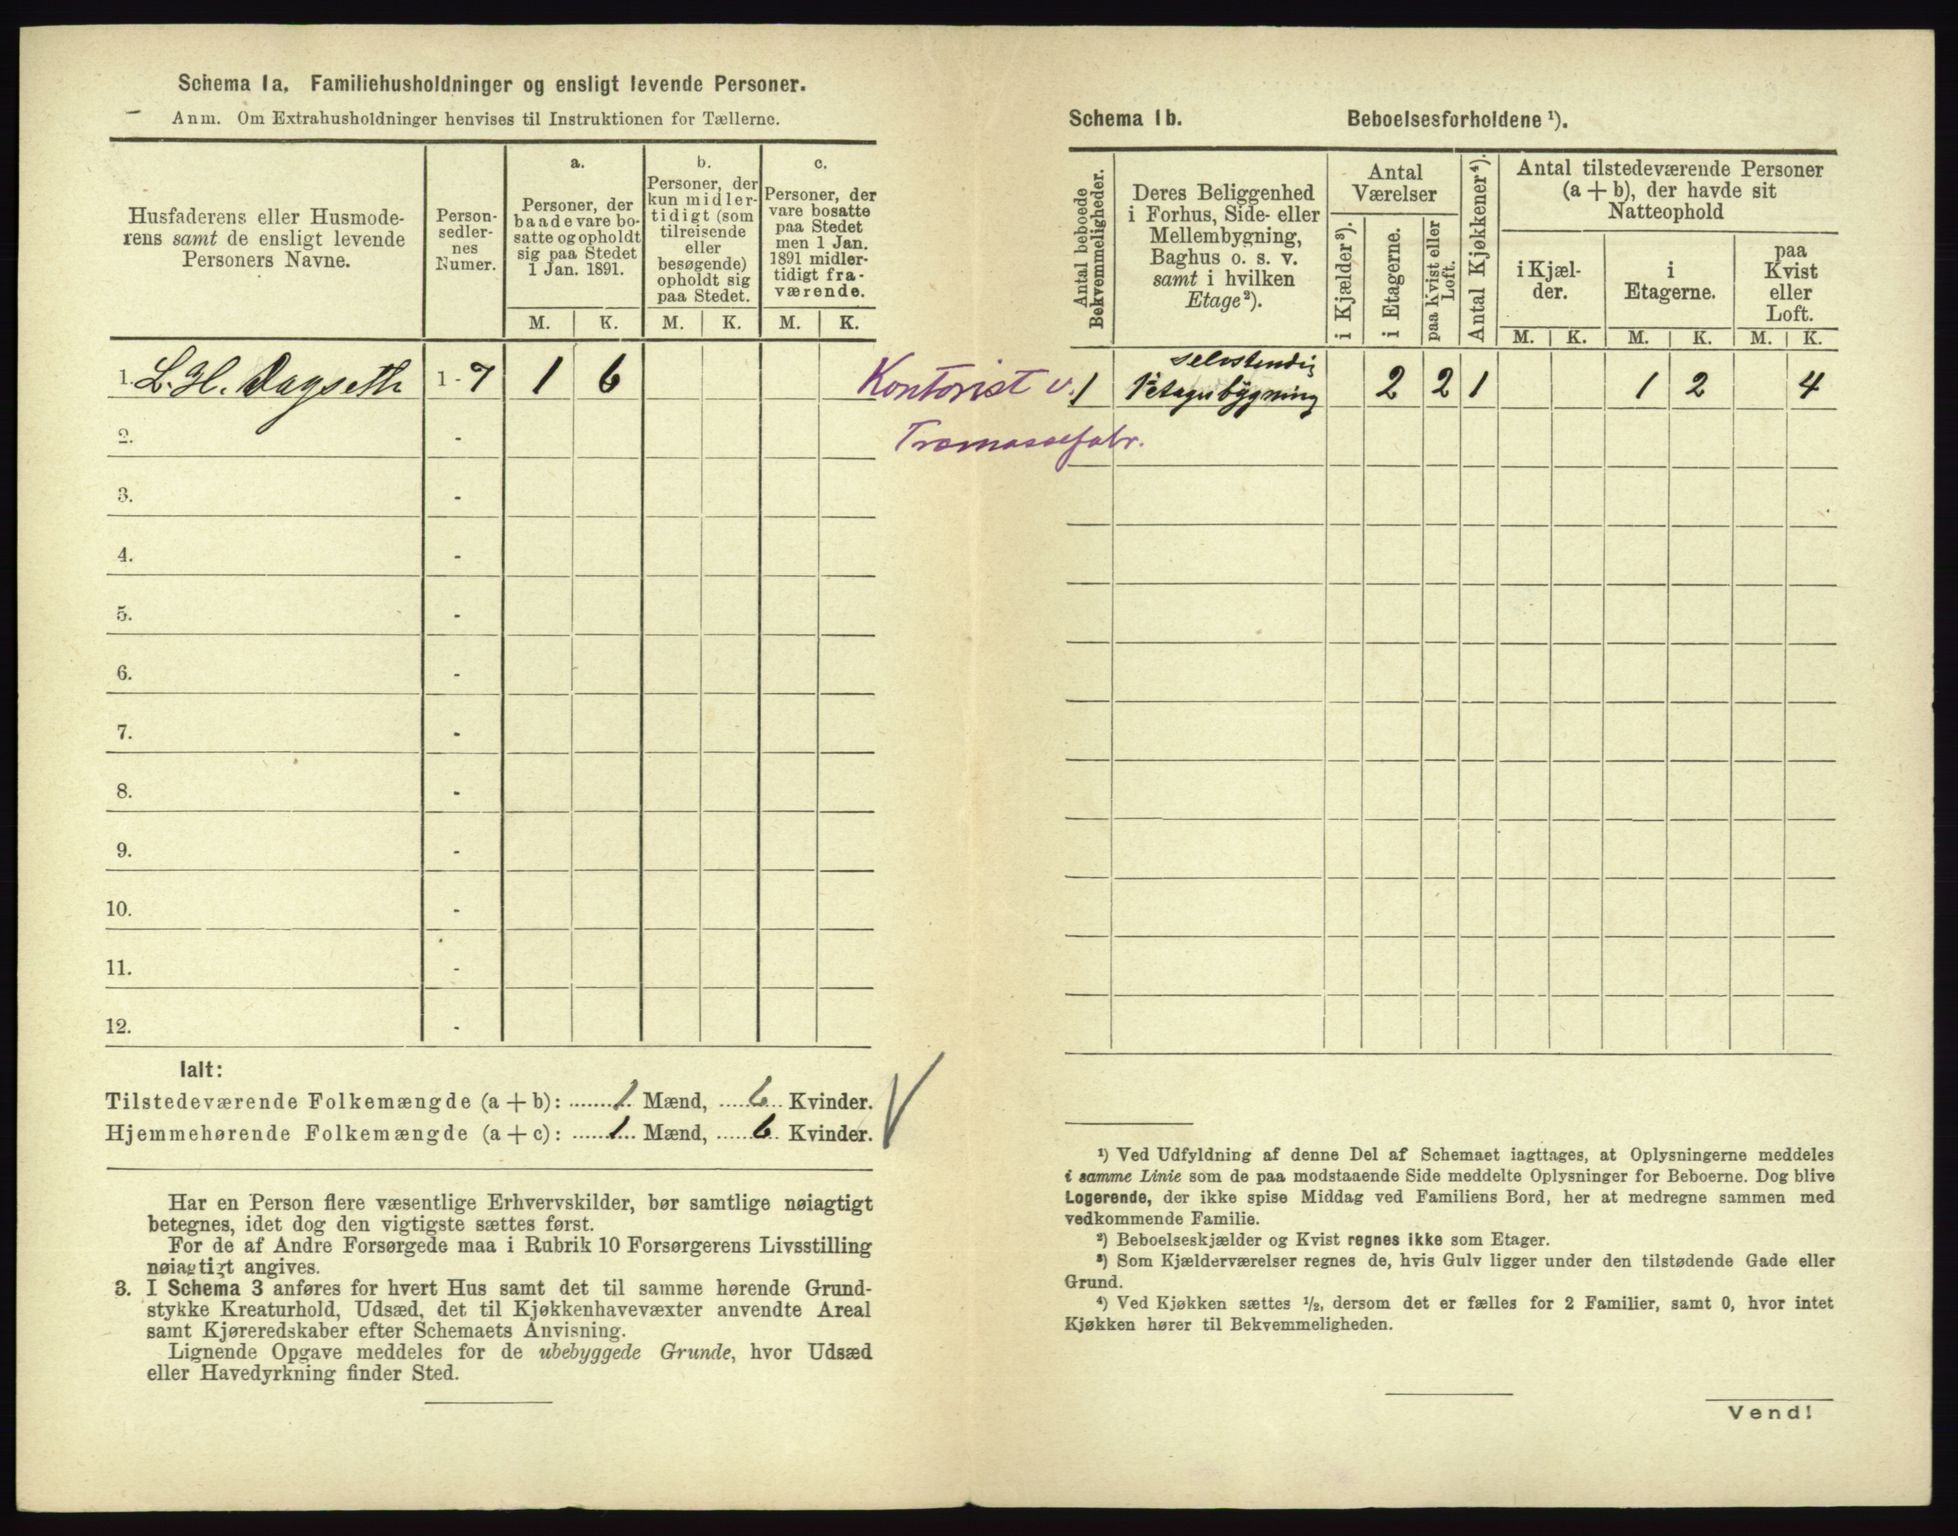 Schema 1a. Familiehusholdninger og ensligt levende Personer.
Anm. Om Extrahusholdninger henvises til Instruktionen for Tællerne.
Husfaderens eller Husmode-
rens samt de ensligt levende
Personers Navne.
Person-
sedler-
nes
Numer.
a.
Personer, der
baade vare bo-
satte og opholdt
sig paa Stedet
1 Jan. 1891.
b.
Personer, der
kun midler-
tidigt (som
tilreisende
eller
besøgende)
opholdt sig
paa Stedet.
c.
Personer, der
vare bosatte
paa Stedet
men 1 Jan.
1891 midler-
tidigt fra-
værende.
M. K. M. K. M. K.
1. L. H. Dagseth 1-7 1 6
2. -
3. -
4. -
5. -
6. -
7. -
8. -
9. -
10. -
11. -
12. -
Ialt:
Tilstedeværende Folkemængde (a + b): 1 Mænd, 6 Kvinder.
Hjemmehørende Folkemængde (a + c): 1 Mænd, 6 Kvinder.
Har en Person flere væsentlige Erhvervskilder, bør samtlige nøiagtigt
betegnes, idet dog den vigtigste sættes først.
For de af Andre Forsørgede maa i Rubrik 10 Forsørgerens Livsstilling
nøiagtigt angives.
3. I Schema 3 anføres for hvert Hus samt det til samme hørende Grund-
stykke Kreaturhold, Udsæd, det til Kjøkkenhavevæxter anvendte Areal
samt Kjøreredskaber efter Schemaets Anvisning.
Lignende Opgave meddeles for de ubebyggede Grunde, hvor Udsæd
eller Havedyrkning finder Sted.
Kontorist v.
Træmassefabr.
Schema 1b. Beboelsesforholdene ¹).
Antal beboede
Bekvemmeligheder.
Deres Beliggenhed
i Forhus, Side- eller
Mellembygning,
Baghus o. s. v.
samt i hvilken
Etage²).
Antal
Værelser
i Kjælder³).
i Etagerne.
paa Kvist eller
Loft.
Antal Kjøkkener⁴).
Antal tilstedeværende Personer
(a + b), der havde sit
Natteophold
i Kjæl-
der.
i
Etagerne.
paa
Kvist
eller
Loft.
M. K. M. K. M. K.
selvstendig
1 1 etages bygning 2 2 1 1 2 4
¹) Ved Udfyldning af denne Del af Schemaet iagttages, at Oplysningerne meddeles
i samme Linie som de paa modstaaende Side meddelte Oplysninger for Beboerne. Dog blive
Logerende, der ikke spise Middag ved Familiens Bord, her at medregne sammen med
vedkommende Familie.
²) Beboelseskjælder og Kvist regnes ikke som Etager.
³) Som Kjælderværelser regnes de, hvis Gulv ligger under den tilstødende Gade eller
Grund.
⁴) Ved Kjøkken sættes ½, dersom det er fælles for 2 Familier, samt 0, hvor intet
Kjøkken hører til Bekvemmeligheden.
Vend!